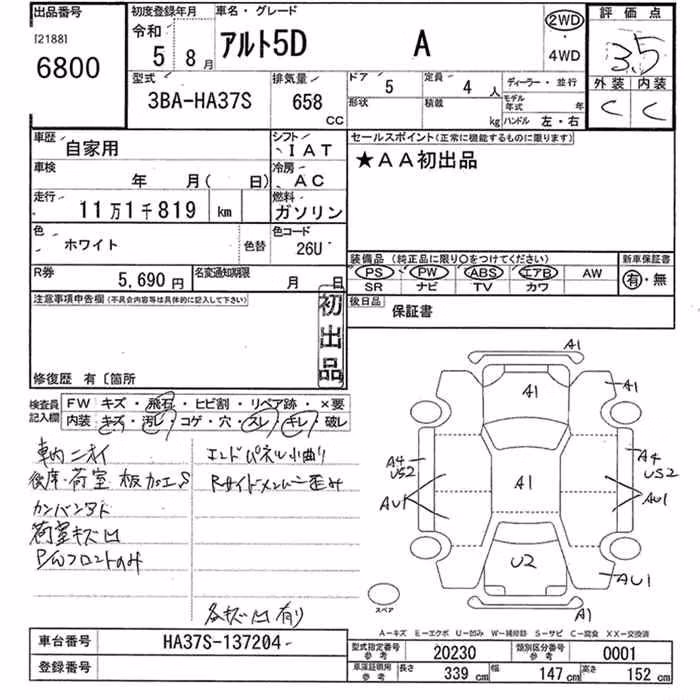 出品番号
[2188]
6800
初度登録年月
令和
5 8月
車名・グレード
アルト5D A
2WD
・
4WD
評価点
3.5
外装 内装
C C
型式
3BA-HA37S
排気量
658
CC
ドア 5
形状
定員 4 人
積載 kg
ディーラー・並行
モデル年式 年
ハンドル 左・右
車歴
自家用
シフト
IAT
車検
年 月( 日)
冷房
AC
走行
11万1千819 km
燃料
ガソリン
色
ホワイト
色替
色コード
26U
R券
5,690円
名変通知期限
月 日
セールスポイント(正常に機能するものに限ります)
★AA初出品
装備品(純正品に限り○をつけてください)
PS PW ABS エアB AW
SR ナビ TV カワ
新車保証書
有・無
後日品
保証書
注意事項申告欄(不具合内容等は具体的に記入して下さい)
初出品
修復歴 有〔箇所
検査員記入欄
FW キズ・飛石・ヒビ割・リペア跡・×要
内装 キズ・汚レ・コゲ・穴・スレ・キレ・破レ
車内ニオイ
後席・荷室 板加工S
カンバンアト
荷室キズ凹
P/Wフロントのみ
エンドパネル小曲り
Rサイドメンバー歪み
各キズ凹有り
A1
A1
A1
A4
US2
A4
US2
A1
AU1
AU1
U2
AU1
A1
スペア
A-キズ E-エクボ U-凹み W-補修跡 S-サビ C-腐食 XX-交換済
車台番号
HA37S-137204
登録番号
型式指定番号
参考
20230
類別区分番号
参考
0001
車庫証明用
参考
長さ 339 cm
幅 147 cm
高さ 152 cm